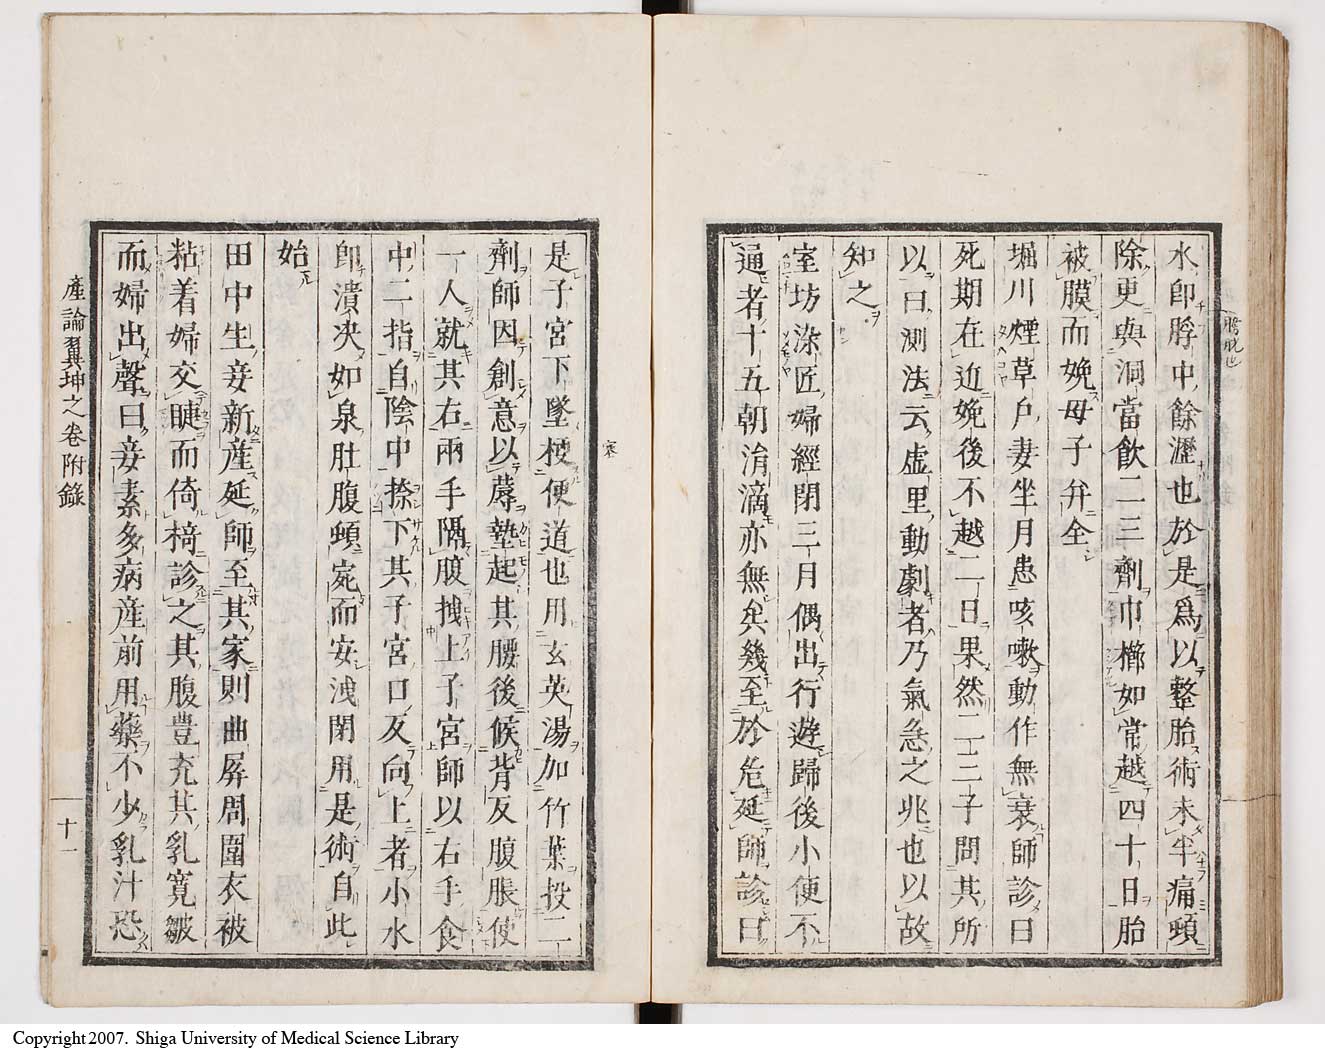 水即脬中餘瀝也於是爲以整胎術未半痛頓
除更與洞當飲二三劑巾櫛如常越四十日胎
被膜而娩母子并全
堀川煙草戶妻坐月患咳嗽動作無衰師診曰
死期在近娩後不越二日果然二三子問其所
以曰測法云虛里動劇者乃氣急之兆也以故
知之
室坊染匠婦經閉三月偶出行遊歸後小便不
通者十五朝涓滴亦無矣幾至於危延師診曰
是子宮下墜梗便道也用玄英湯加竹葉投二
劑師因創意以蓐墊起其腰後候背反腹脹使
一人就其右兩手隔腹拽上子宮師以右手食
中二指自陰中捺下其子宮口反向上者小水
即潰决如泉肚腹頓寬而安洩閉用是術自此
始
田中生妾新產延師至其家則曲屏周圍衣被
粘着婦交睫而倚椅診之其腹豊充其乳寬皺
而婦出聲曰妾素多病産前用藥不少乳汁恐
產論翼坤之卷附錄
十一
Copyright 2007. Shiga University of Medical Science Library